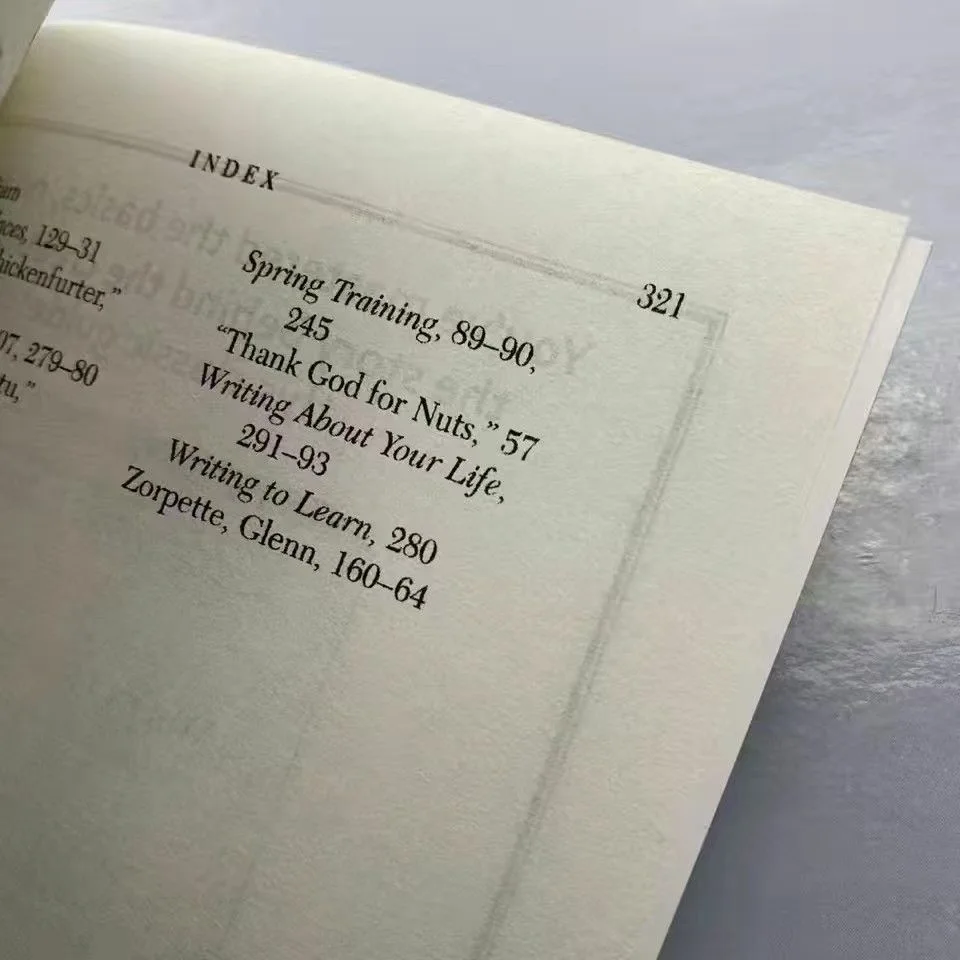 INDEX
321
129–31
279–80
Spring Training, 89–90,
245
“Thank God for Nuts,” 57
Writing About Your Life,
291–93
Writing to Learn, 280
Zorpette, Glenn, 160–64